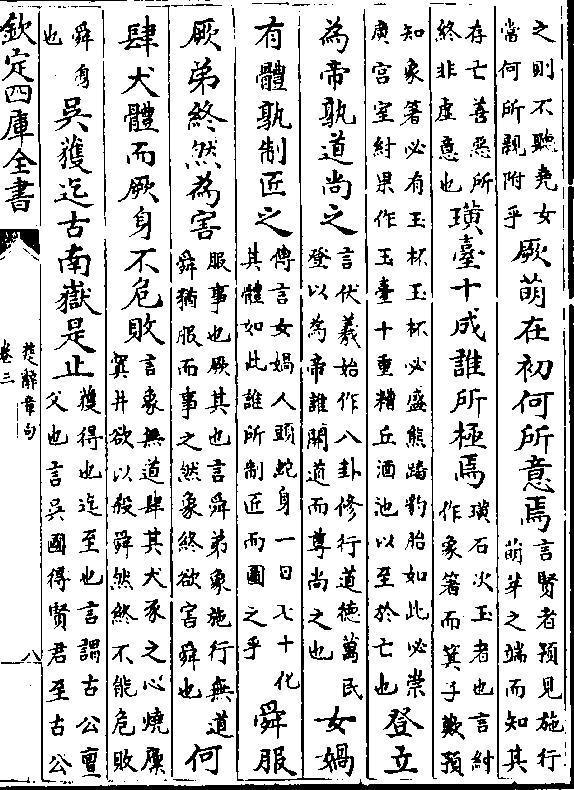 之則不聽堯女
當何所親附乎
厥萌在初何所意焉
言賢者預見施行
萌芽之端而知其
存亡善惡所
終非虛意也
璜臺十成誰所極焉
璜石次玉者也言紂
作象箸而箕子歎預
知象箸必有玉杯玉杯必盛熊蹯豹胎如此必崇
廣宫室紂果作玉臺十重糟丘酒池以至於亡也
登立
為帝孰道尚之
言伏羲始作八卦修行道德萬民
登以為帝誰開道而尊尚之也
女媧
有體孰制匠之
傳言女媧人頭蛇身一日七十化
其體如此誰所制匠而圖之乎
舜服
厥弟終然為害
服事也厥其也言舜弟象施行無道
舜猶服而事之然象終欲害舜也
何
肆犬體而厥身不危敗
言象無道肆其犬豕之心燒廩
窴井欲以殺舜然終不能危敗
舜身
也
吳獲迄古南嶽是止
獲得也迄至也言謂古公亶
父也言吳國得賢君至古公
欽定四庫全書
楚辭章句
卷三
八